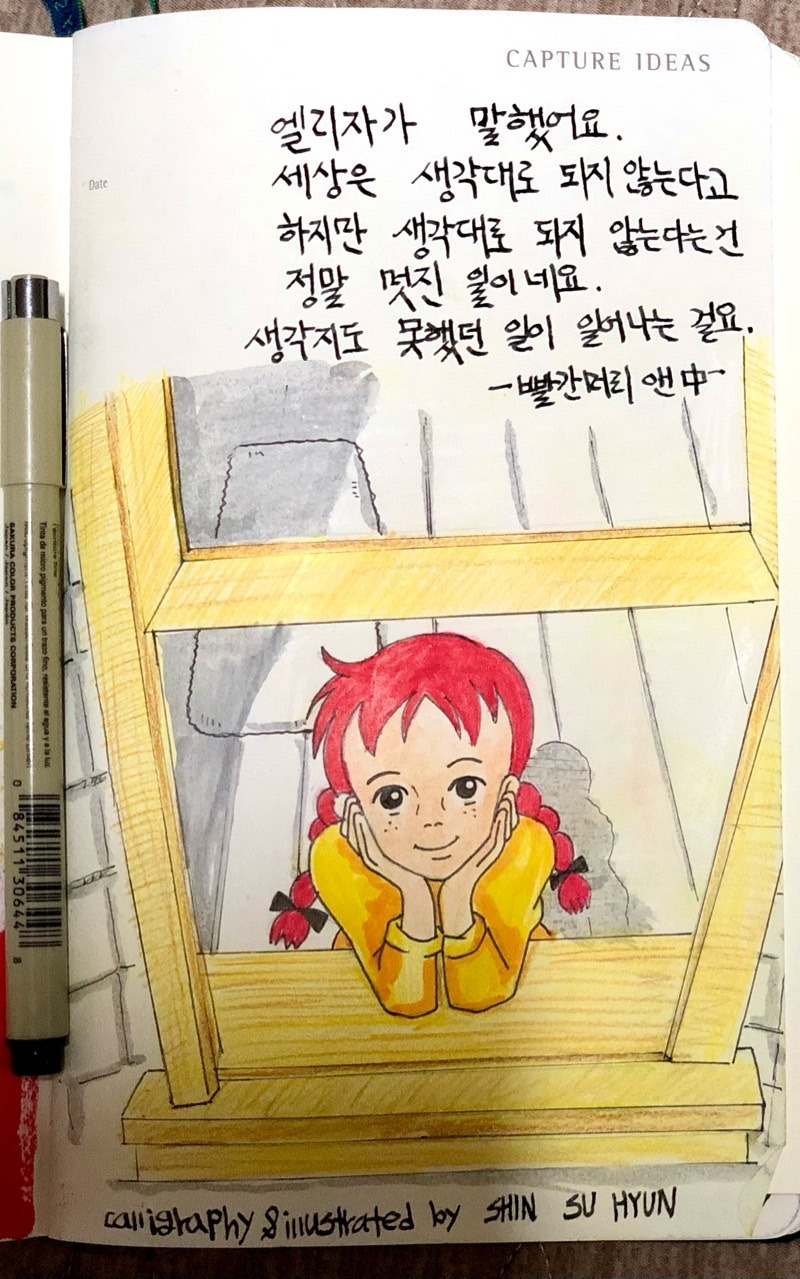 CAPTURE IDEAS
Date
엘리자가 말했어요.
세상은 생각대로 되지 않는다고
하지만 생각대로 되지 않는다는건
정말 멋진 일이네요.
생각지도 못했던 일이 일어나는 걸요.
-빨간머리 앤 中-
Tinta de micro pigmento para un trazo fino, resistente al agua y a la luz.
SAKURA COLOR PRODUCTS CORPORATION
0 84511 30644 8
calligraphy & illustrated by SHIN SU HYUN